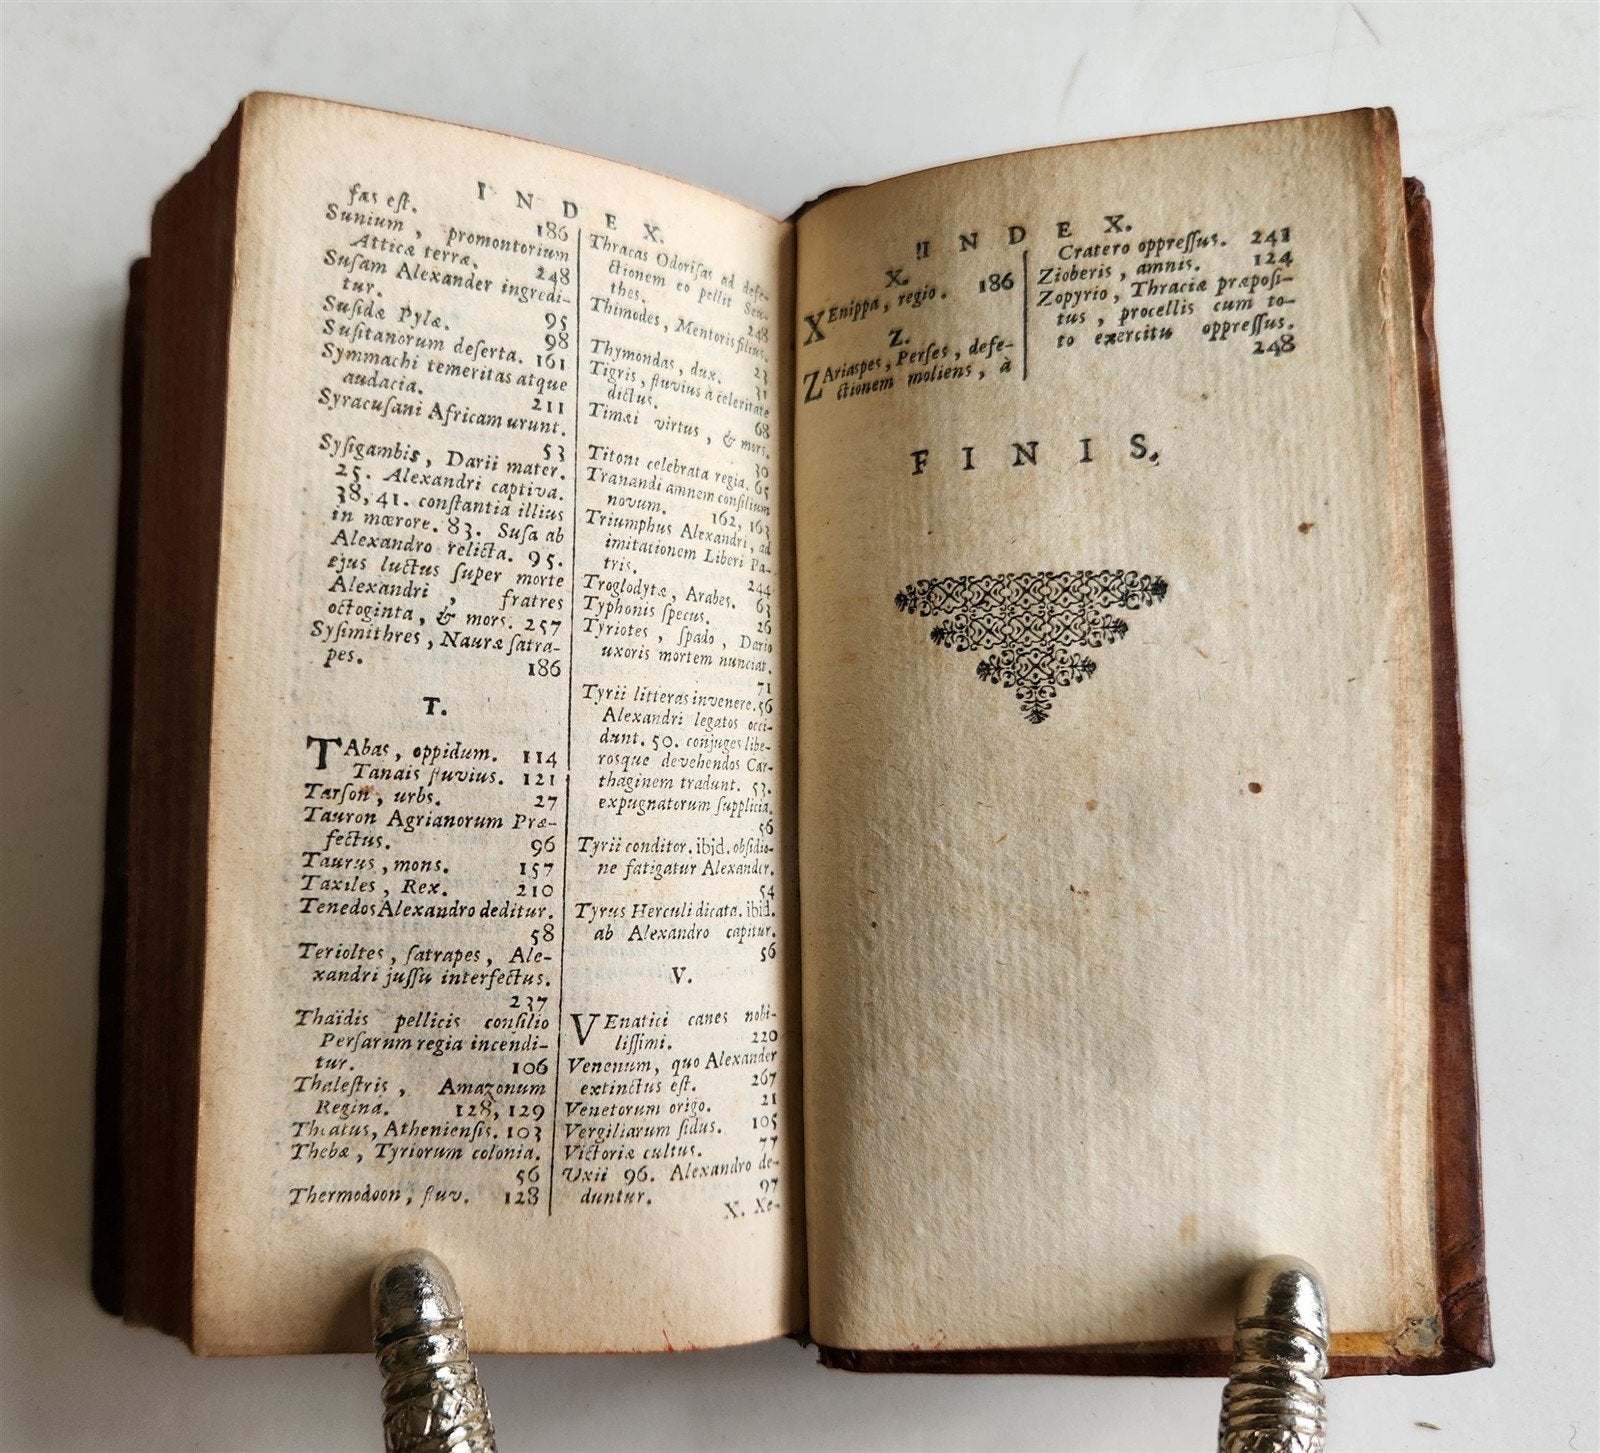 INDEX.
fas est. 186
Sunium, promontorium
Atticæ terræ. 248
Suſam Alexander ingredi-
tur. 95
Suſidæ Pylæ. 98
Suſitanorum deſerta. 161
Symmachi temeritas atque
audacia. 211
Syracuſani Africam urunt.
53
Syſigambis, Darii mater.
25. Alexandri captiva.
38, 41. conſtantia illius
in mœrore. 83. Suſa ab
Alexandro relicta. 95.
ejus luctus ſuper morte
Alexandri, fratres
octoginta, & mors. 257
Syſimithres, Nauræ ſatra-
pes. 186
T.
TAbas, oppidum. 114
Tanais fluvius. 121
Tarſon, urbs. 27
Tauron Agrianorum Præ-
fectus. 96
Taurus, mons. 157
Taxiles, Rex. 210
Tenedos Alexandro deditur.
58
Terioltes, ſatrapes, Ale-
xandri juſſu interfectus.
237
Thaïdis pellicis conſilio
Perſarum regia incendi-
tur. 106
Thaleſtris, Amazonum
Regina. 128, 129
Thætus, Athenienſis. 103
Thebæ, Tyriorum colonia.
56
Thermodoon, fluv. 128
Thracas Odoriſas ad defe-
ctionem eo pellit Seu-
thes. 248
Thimodes, Mentoris filius.
23
Thymondas, dux. 31
Tigris, fluvius à celeritate
dictus. 68
Timæi virtus, & mors.
30
Titoni celebrata regia. 65
Tranandi amnem conſilium
novum. 162, 163
Triumphus Alexandri, ad
imitationem Liberi Pa-
tris. 244
Troglodytæ, Arabes. 63
Typhonis ſpecus. 26
Tyriotes, ſpado, Dario
uxoris mortem nunciat.
71
Tyrii litteras invenere. 56
Alexandri legatos occi-
dunt. 50. conjuges libe-
rosque devehendos Car-
thaginem tradunt. 53.
expugnatorum ſupplicia.
56
Tyrii conditor. ibid. obſidio-
ne fatigatur Alexander.
54
Tyrus Herculi dicata. ibid.
ab Alexandro capitur.
56
V.
VEnatici canes nobi-
liſſimi. 220
Venenum, quo Alexander
extinctus eſt. 267
Venetorum origo. 21
Vergiliarum ſidus. 105
Victoriæ cultus. 77
Uxii 96. Alexandro de-
duntur. 97
X. Xe-
INDEX.
X.
XEnippa, regio. 186
Z.
ZAriaspes, Perſes, defe-
ctionem moliens, à
Cratero oppreſſus. 241
Zioberis, amnis. 124
Zopyrio, Thraciæ præpoſi-
tus, procellis cum to-
to exercitu oppreſſus.
248
FINIS.